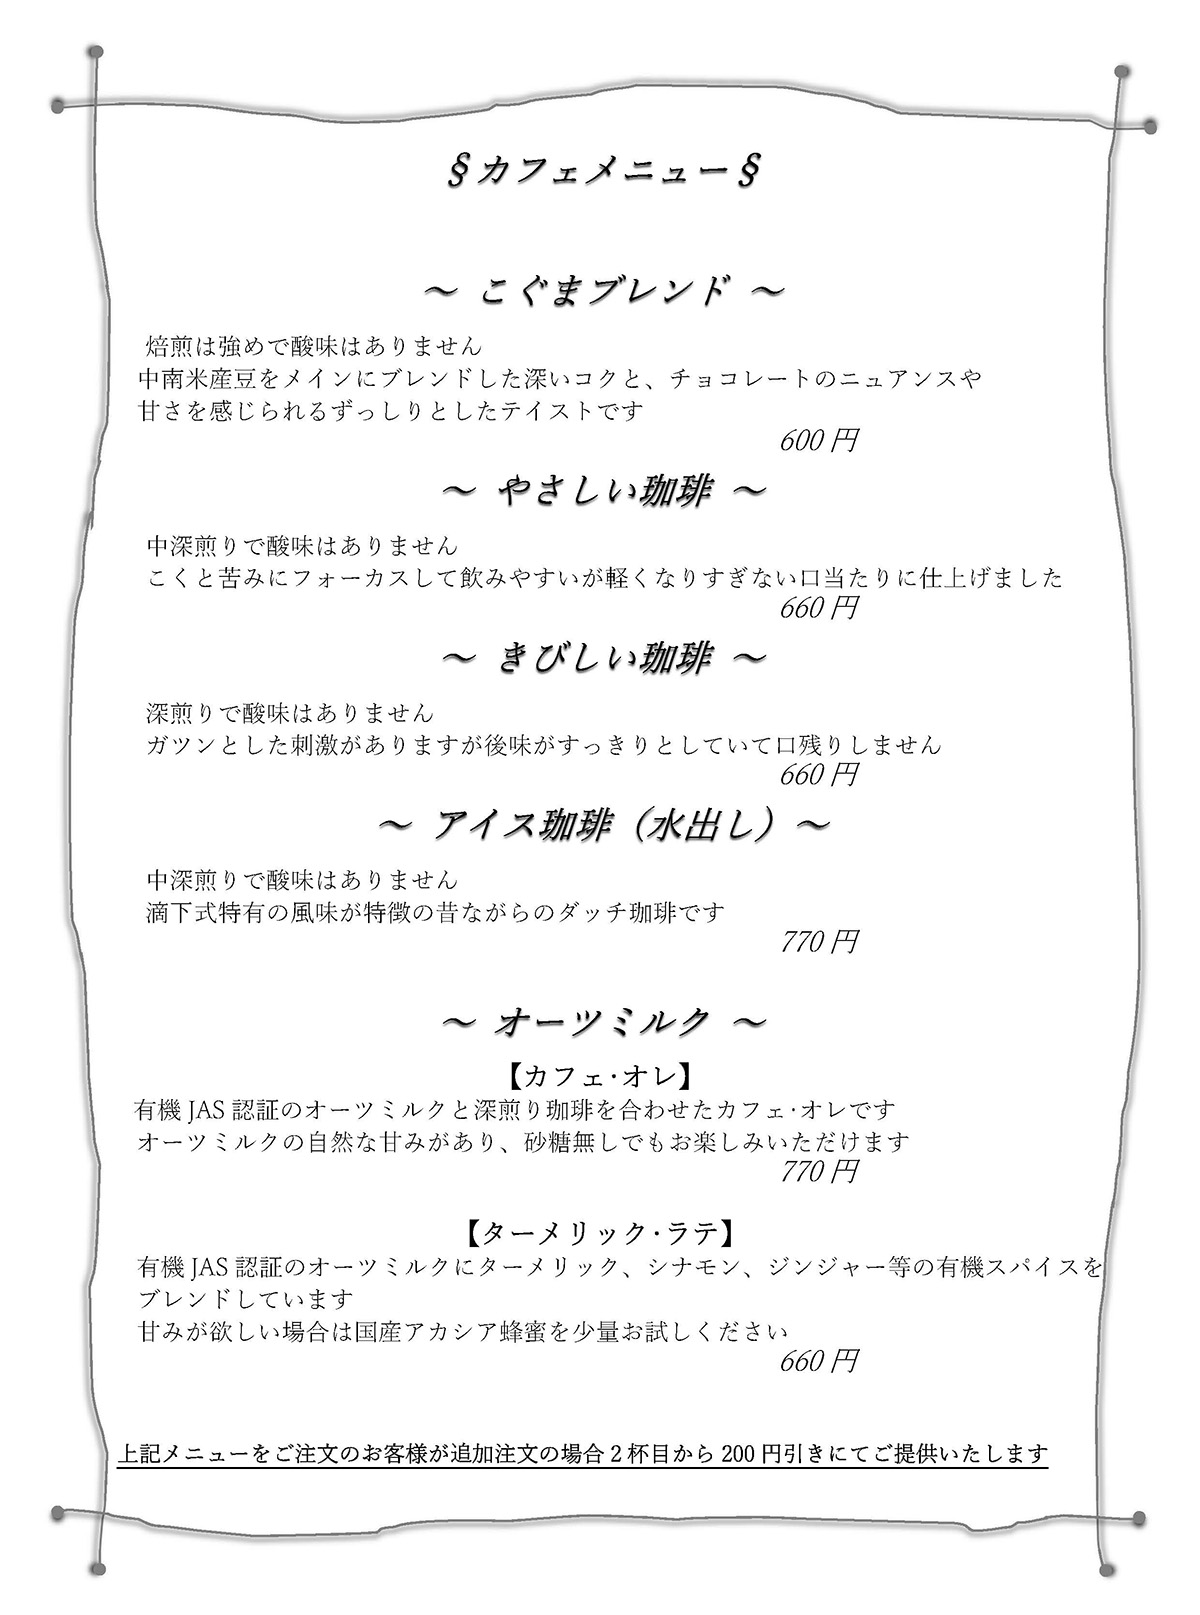 §カフェメニュー§
～ こぐまブレンド ～
焙煎は強めで酸味はありません
中南米産豆をメインにブレンドした深いコクと、チョコレートのニュアンスや
甘さを感じられるずっしりとしたテイストです
600 円
～ やさしい珈琲 ～
中深煎りで酸味はありません
こくと苦みにフォーカスして飲みやすいが軽くなりすぎない口当たりに仕上げました
660 円
～ きびしい珈琲 ～
深煎りで酸味はありません
ガツンとした刺激がありますが後味がすっきりとしていて口残りしません
660 円
～ アイス珈琲（水出し）～
中深煎りで酸味はありません
滴下式特有の風味が特徴の昔ながらのダッチ珈琲です
770 円
～ オーツミルク ～
【カフェ・オレ】
有機 JAS 認証のオーツミルクと深煎り珈琲を合わせたカフェ・オレです
オーツミルクの自然な甘みがあり、砂糖無しでもお楽しみいただけます
770 円
【ターメリック・ラテ】
有機 JAS 認証のオーツミルクにターメリック、シナモン、ジンジャー等の有機スパイスを
ブレンドしています
甘みが欲しい場合は国産アカシア蜂蜜を少量お試しください
660 円
上記メニューをご注文のお客様が追加注文の場合 2 杯目から 200 円引きにてご提供いたします